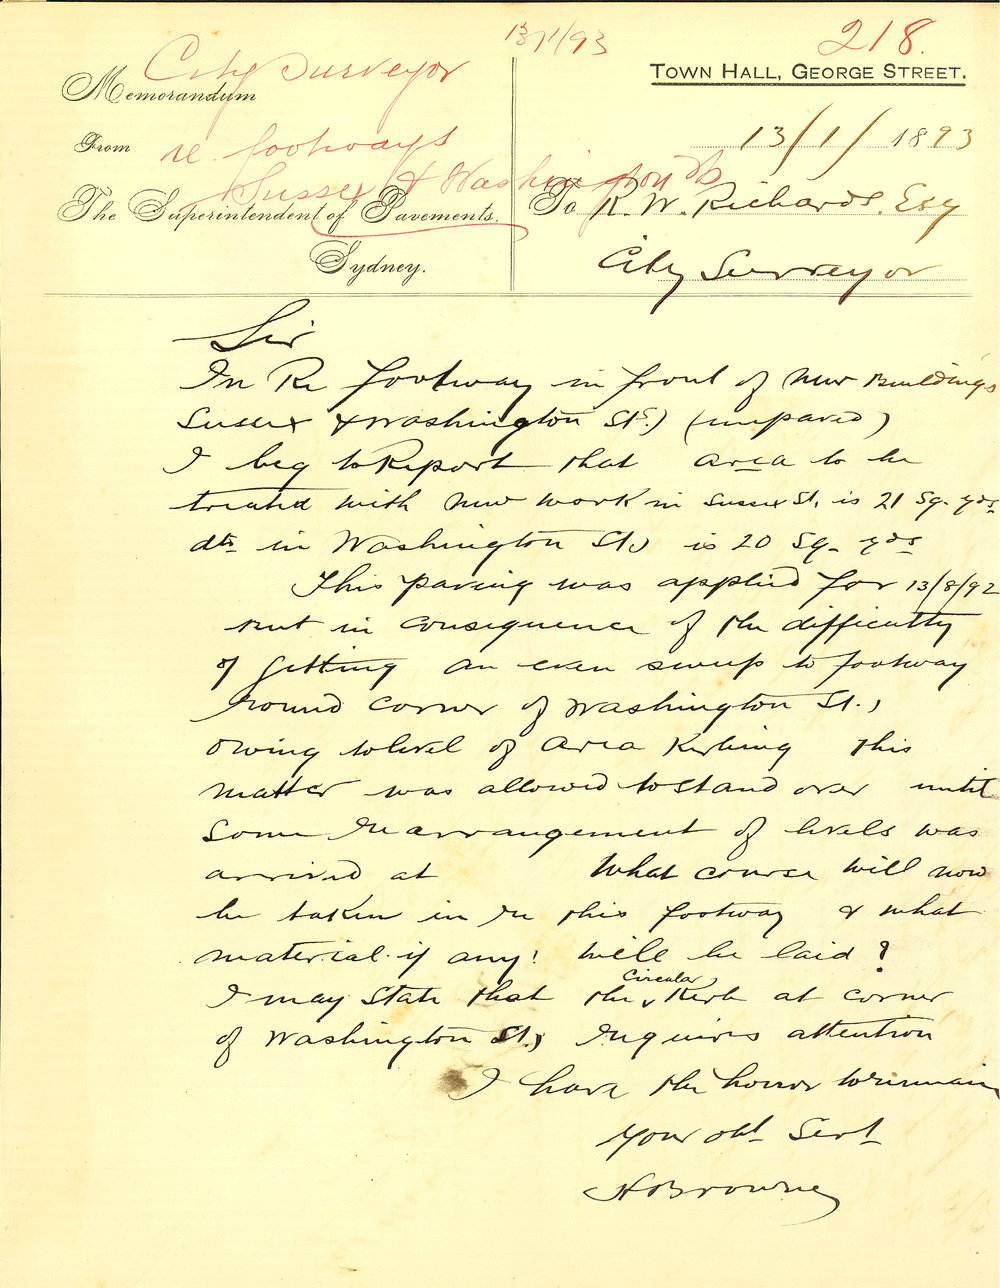 13/1/93
218.
City Surveyor
Memorandum
TOWN HALL, GEORGE STREET.
From
re. footways
13/1/1893
Sussex & Washington Sts
The Superintendent of Pavements,
To R. W. Richards. Esq
Sydney.
City Surveyor
Sir
In Re footway in front of New Buildings
Sussex & Washington Sts) (unpaved)
I beg to Report that area to be
treated with new work in Sussex St. is 21 Sq. yds
dto in Washington St, is 20 Sq. yds
This paving was applied for 13/8/92
but in consequence of the difficulty
of getting an even sweep to footway
round corner of Washington St.,
owing to level of Area Kerbing this
matter was allowed to stand over until
some rearrangement of levels was
arrived at What course will now
be taken in re this footway & what
material if any! will be laid?
I may state that the Circular Kerb at corner
of Washington St., requires attention
I have the honor to remain
Your obt Servt
H Browne